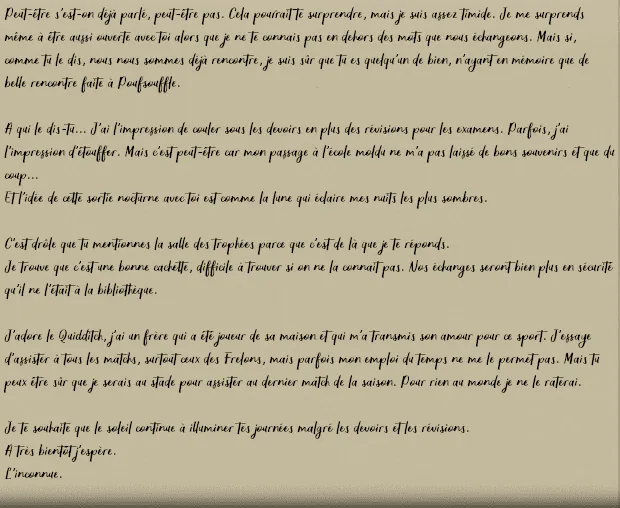 Peut-être s'est-on déjà parlé, peut-être pas. Cela pourrait te surprendre, mais je suis assez timide. Je me surprends
même à être aussi ouverte avec toi alors que je ne te connais pas en dehors des mots que nous échangeons. Mais si,
comme tu le dis, nous nous sommes déjà rencontré, je suis sûr que tu es quelqu'un de bien, n'ayant en mémoire que de
belle rencontre faite à Poufsouffle.
A qui le dis-tu... J'ai l'impression de couler sous les devoirs en plus des révisions pour les examens. Parfois, j'ai
l'impression d'étouffer. Mais c'est peut-être car mon passage à l'école moldu ne m'a pas laissé de bons souvenirs et que du
coup...
Et l'idée de cette sortie nocturne avec toi est comme la lune qui éclaire mes nuits les plus sombres.
C'est drôle que tu mentionnes la salle des trophées parce que c'est de là que je te réponds.
Je trouve que c'est une bonne cachette, difficile à trouver si on ne la connait pas. Nos échanges seront bien plus en sécurité
qu'il ne l'était à la bibliothèque.
J'adore le Quidditch, j'ai un frère qui a été joueur de sa maison et qui m'a transmis son amour pour ce sport. J'essaye
d'assister à tous les matchs, surtout ceux des Frelons, mais parfois mon emploi du temps ne me le permet pas. Mais tu
peux être sûr que je serais au stade pour assister au dernier match de la saison. Pour rien au monde je ne le raterai.
Je te souhaite que le soleil continue à illuminer tes journées malgré les devoirs et les révisions.
A très bientôt j'espère.
L'inconnue.